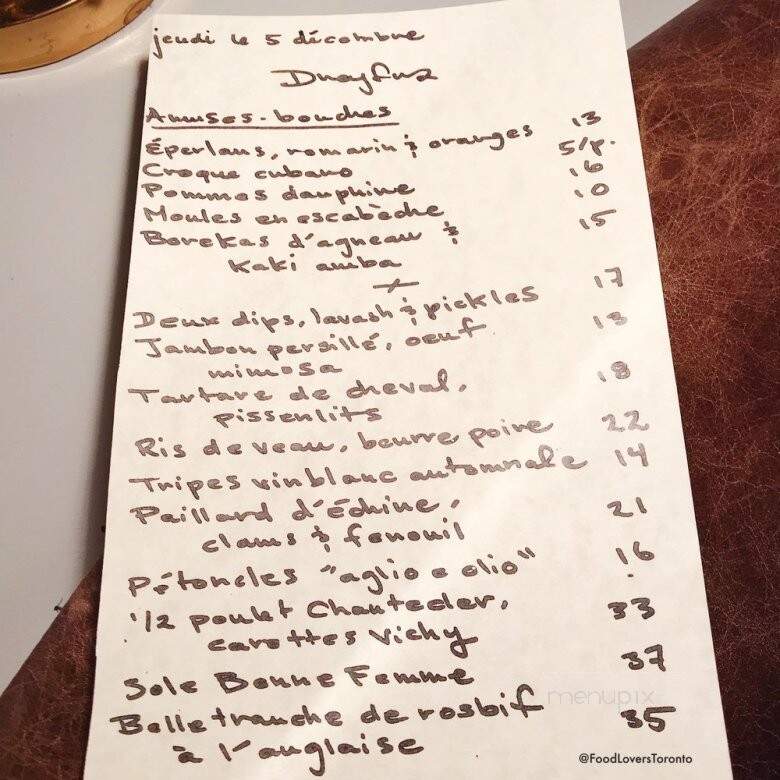 jeudi le 5 décembre
Dreyfus
Amuses-bouches
Éperlans, romarin & oranges 13
Croque cubano 5/p.
Pommes dauphine 16
Moules en escabèche 10
Borekas d'agneau & 15
kaki amba
Deux dips, lavash & pickles 17
Jambon persillé, oeuf 13
mimosa
Tartare de cheval, 18
pissenlits
Ris de veau, beurre poire 22
Tripes vin blanc automnale 14
Paillard d'Échine, 21
clams & fenouil
Pétoncles "aglio e olio" 16
1/2 poulet Chantecler, 33
carottes Vichy
Sole Bonne Femme 37
Belle tranche de rosbif 35
à l'anglaise
menupix
@FoodLoversToronto